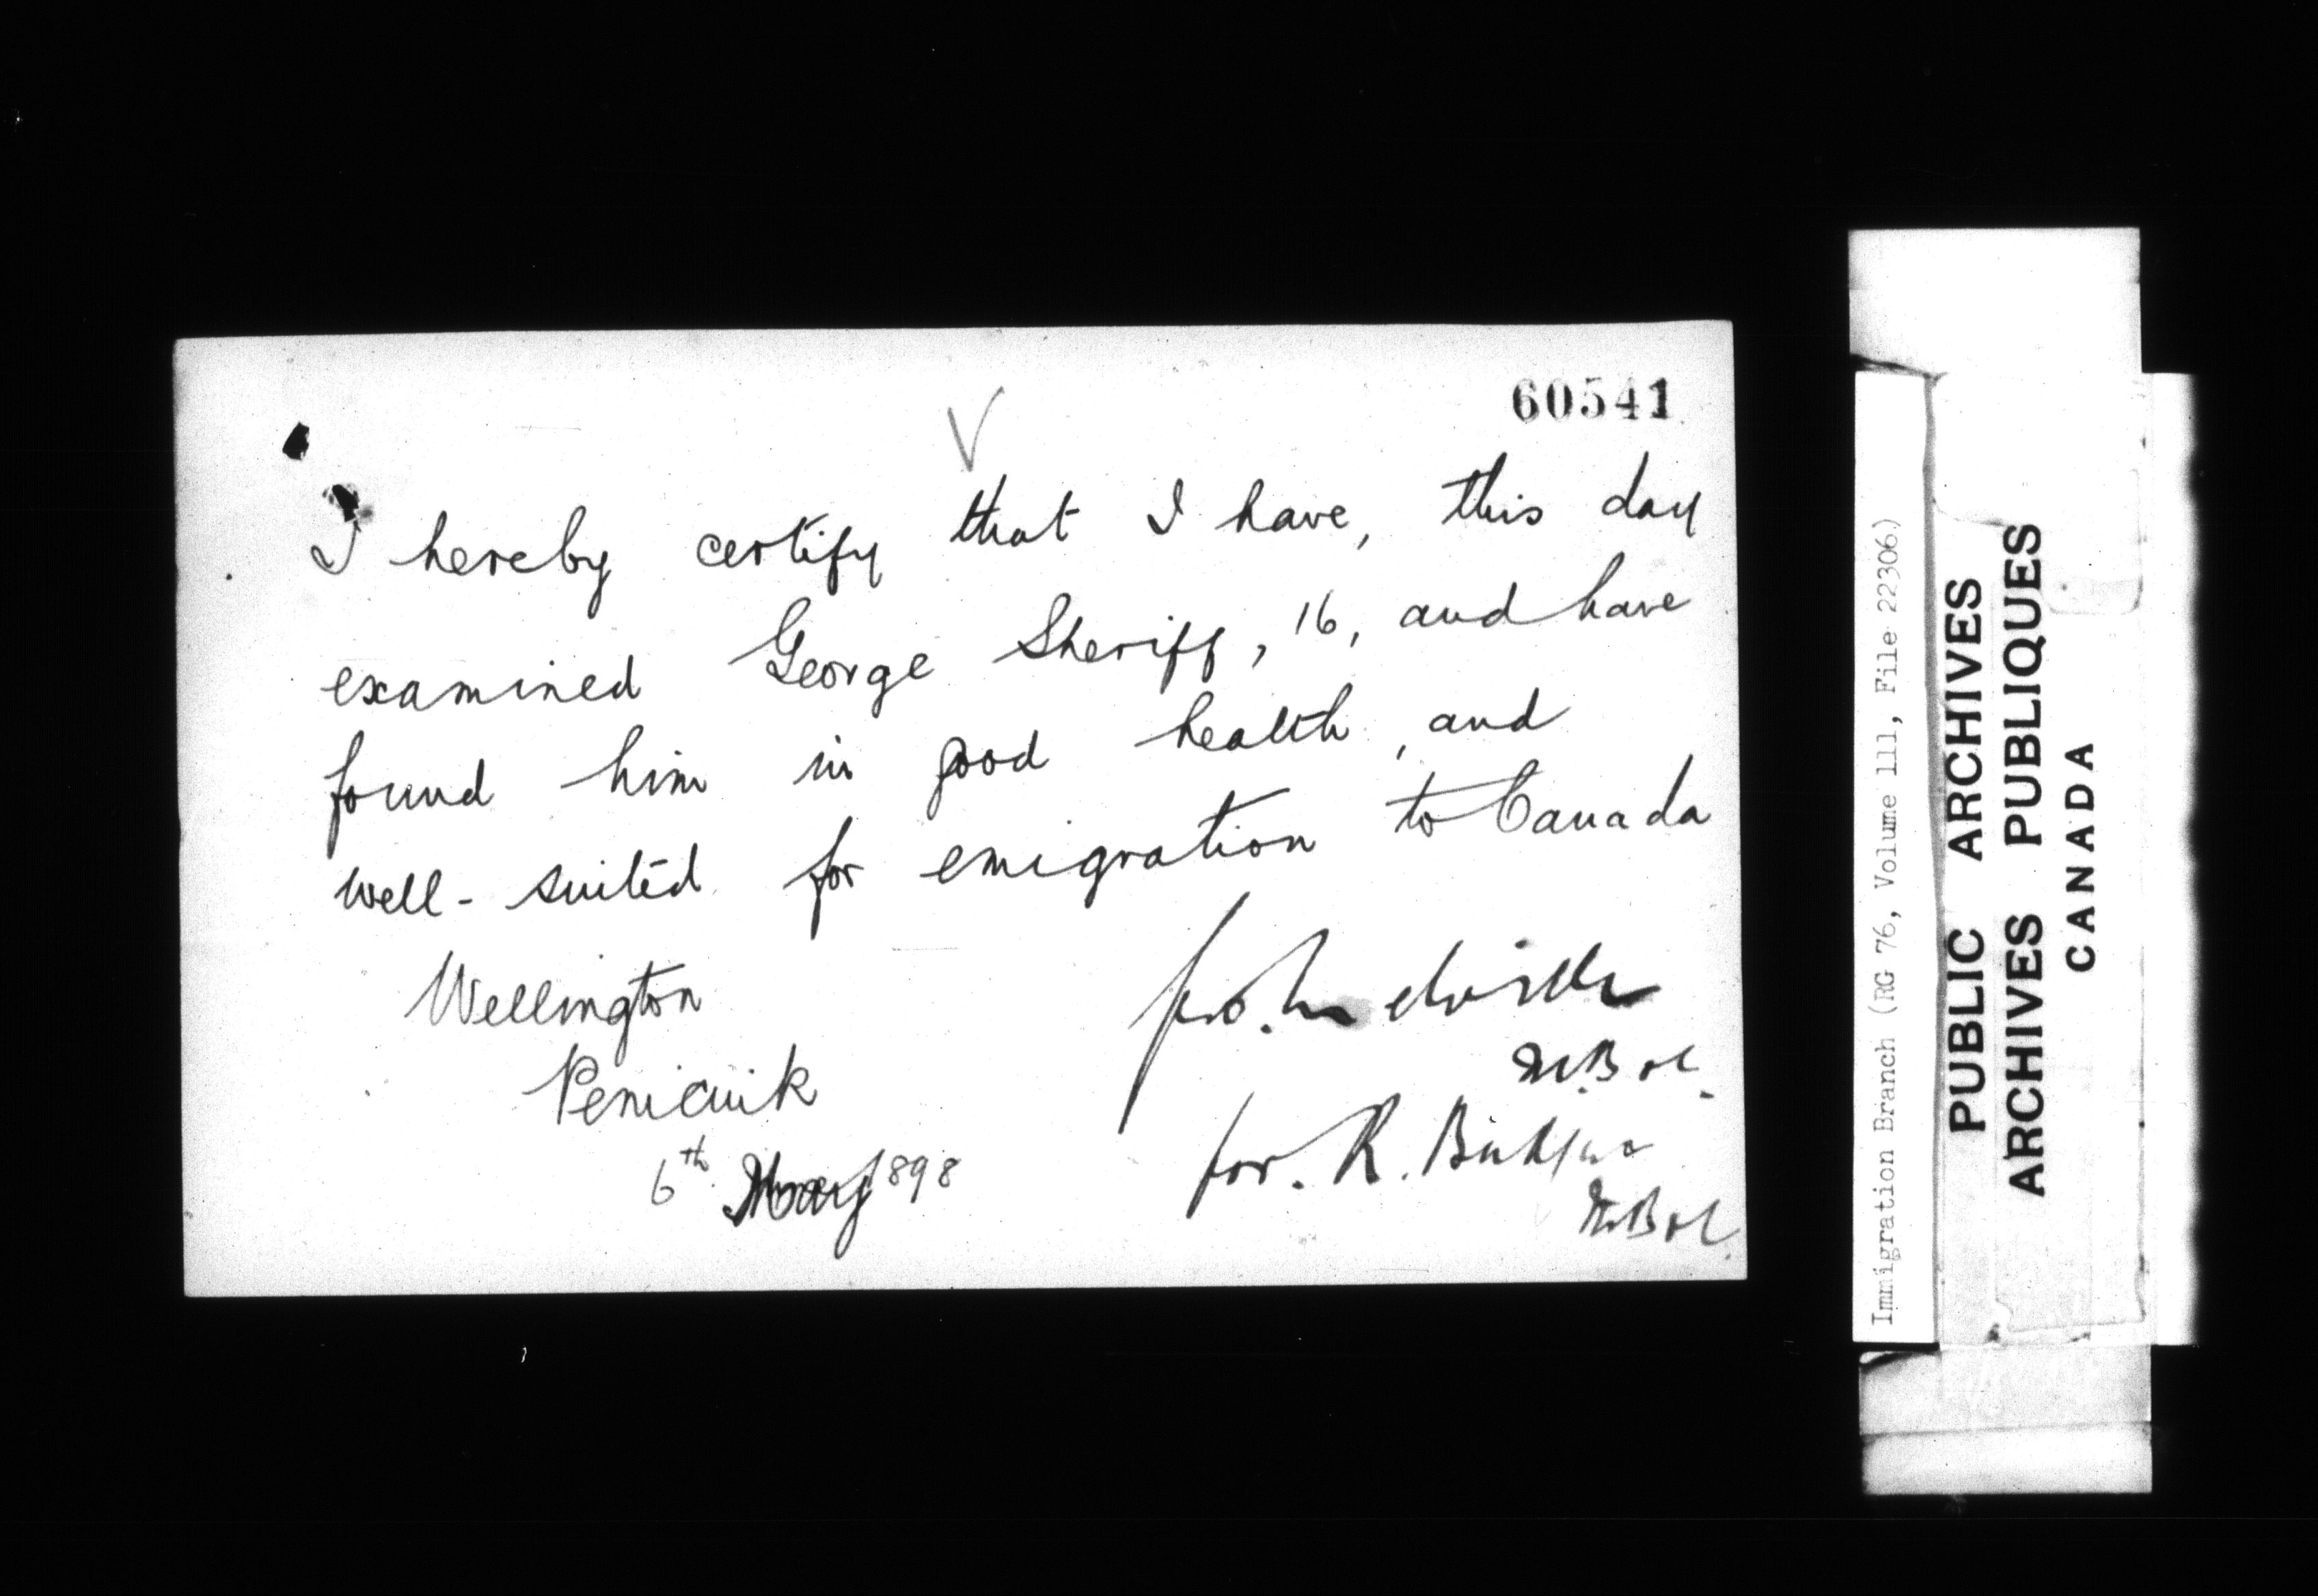 60541
I hereby certify that I have, this day
examined George Sheriff, 16, and have
found him in good health, and
well-suited for emigration to Canada
Wellington
Penicuik
6th May 1898
M.B.
for. R.
M.B.
Immigration Branch (RG 76, Volume 111, File 22306)
PUBLIC ARCHIVES
ARCHIVES PUBLIQUES
CANADA